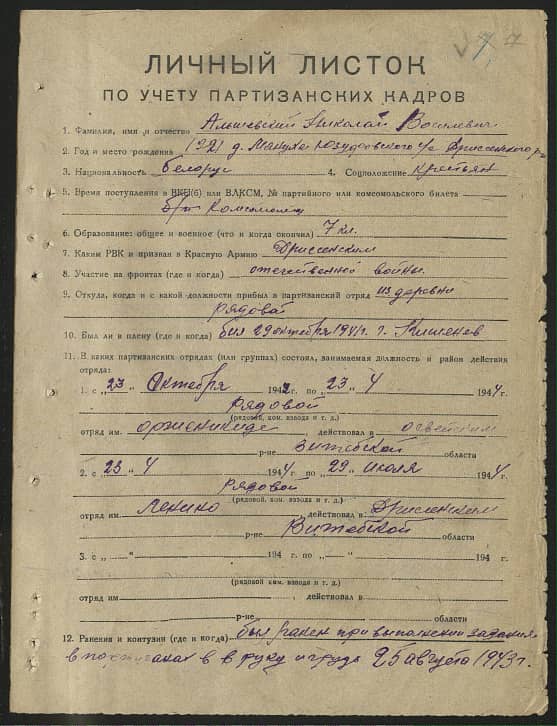 7
ЛИЧНЫЙ ЛИСТОК
ПО УЧЕТУ ПАРТИЗАНСКИХ КАДРОВ
1. Фамилия, имя и отчество Николай Васильевич
2. Год и место рождения 1921 д.
3. Национальность белорус 4. Соцположение крестьян
5. Время поступления в ВКП(б) или ВЛКСМ, № партийного или комсомольского билета
6. Образование: общее и военное (что и когда окончил) 7 кл.
7. Каким РВК и призван в Красную Армию Дриссенским
8. Участие на фронтах (где и когда) отечественной войны
9. Откуда, когда и с какой должности прибыл в партизанский отряд из деревни
рядовой
10. Был ли в плену (где и когда) был 29 октября 1941 г. г. Кишенев
11. В каких партизанских отрядах (или группах) состоял, занимаемая должность и район действия
отряда:
1. с „23" Октября 1942 г. по „23" 4 1944 г.
рядовой
(рядовой, ком. взвода и т. д.)
отряд им. оржсникидзе, действовал в освейском
р-не Витебской области
2. с „23" 4 1944 г. по „29" июля 1944 г.
рядовой
(рядовой, ком. взвода и т. д.)
отряд им. Ленино, действовал в Дрисенском
р-не Витебской области
3. с „ " 194 г. по „ " 194 г.
(рядовой ком. взвода и т. д.)
отряд им. действовал в
р-не области
12. Ранения и контузии (где и когда) был ранен при выполнении задания
в в руку и грудь 25 августа 1943 г.